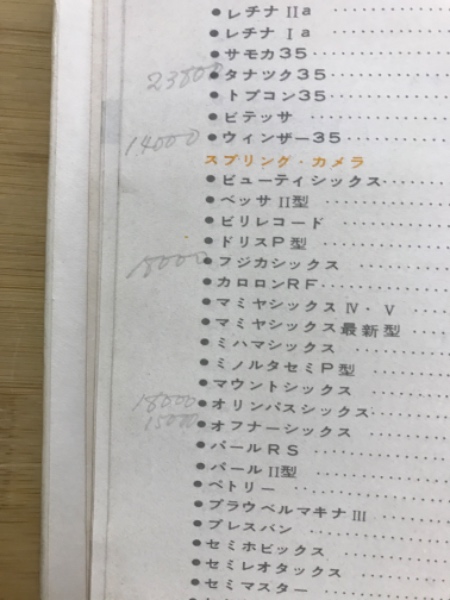 ●レチナ IIa ········
●レチナ Ia ········
●サモカ35 ········
23800 ●タナック35 ········
●トプコン35 ········
●ビテッサ ········
14000 ●ウィンザー35 ········
スプリング・カメラ
●ビューティシックス ········
●ベッサ II型 ········
●ビリレコード ········
●ドリスP型 ········
●フジカシックス ········
●カロロンRF ········
●マミヤシックス IV・V ········
●マミヤシックス最新型 ········
●ミハマシックス ········
●ミノルタセミP型 ········
●マウントシックス ········
18000 ●オリンパスシックス ········
15000 ●オフナーシックス ········
●パールRS ········
●パール II型 ········
●ペトリー ········
●プラウベルマキナ III ········
●プレスバン ········
●セミホビックス ········
●セミレオタックス ········
●セミマスター ········